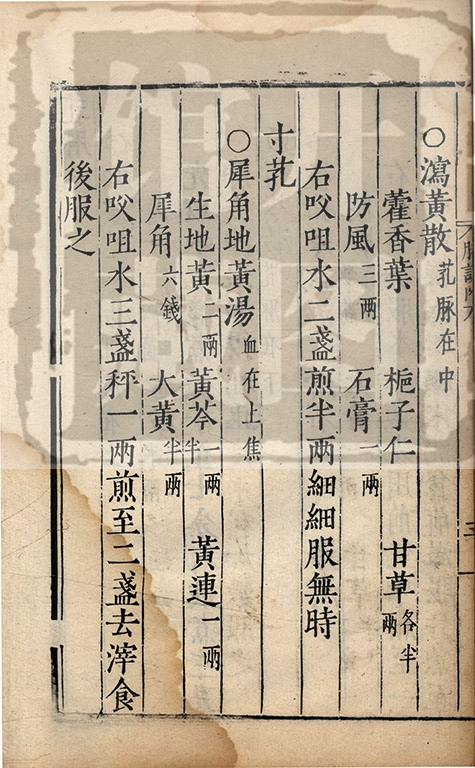 ○瀉黃散芤脉在中
藿香葉 梔子仁 甘草各半兩
防風三兩 石膏一兩
右㕮咀水二盞煎半兩細細服無時
寸芤
○犀角地黃湯血在上焦
生地黃二兩 黃芩一兩半 黃連一兩
犀角六錢 大黃半兩
右㕮咀水三盞秤一兩煎至二盞去滓食
後服之